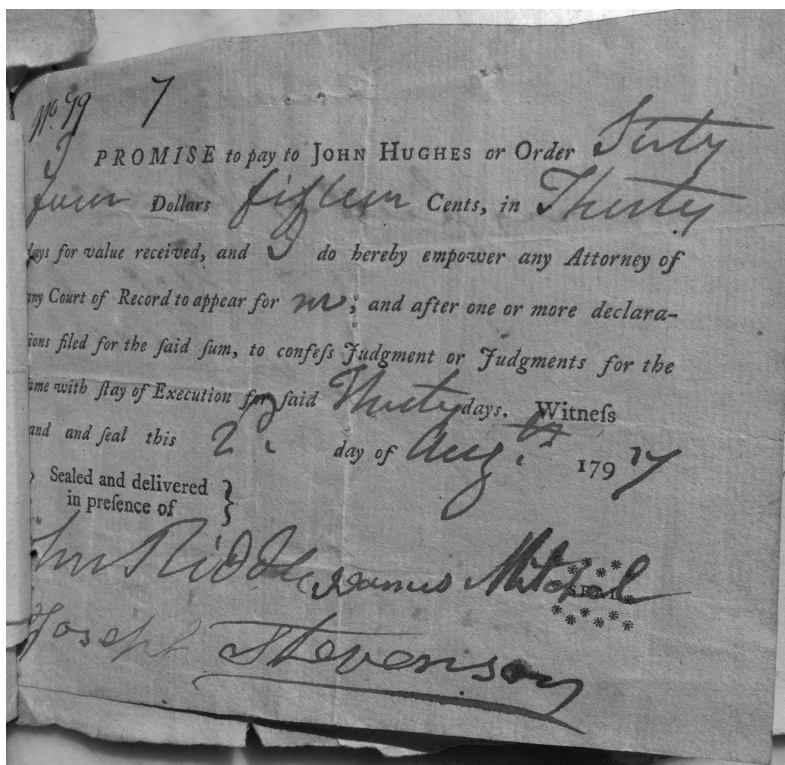 No. 99 7
I PROMISE to pay to JOHN HUGHES or Order Sixty
four Dollars fifteen Cents, in Thirty
days for value received, and I do hereby empower any Attorney of
any Court of Record to appear for me; and after one or more declara-
ions filed for the ſaid ſum, to confeſs Judgment or Judgments for the
ame with ſtay of Execution for ſaid Thirty days. Witneſs
and and ſeal this 2d day of Augt 1797
Sealed and delivered
in preſence of
John Riddle James Mitchel
SEAL
Joseph Stevenson